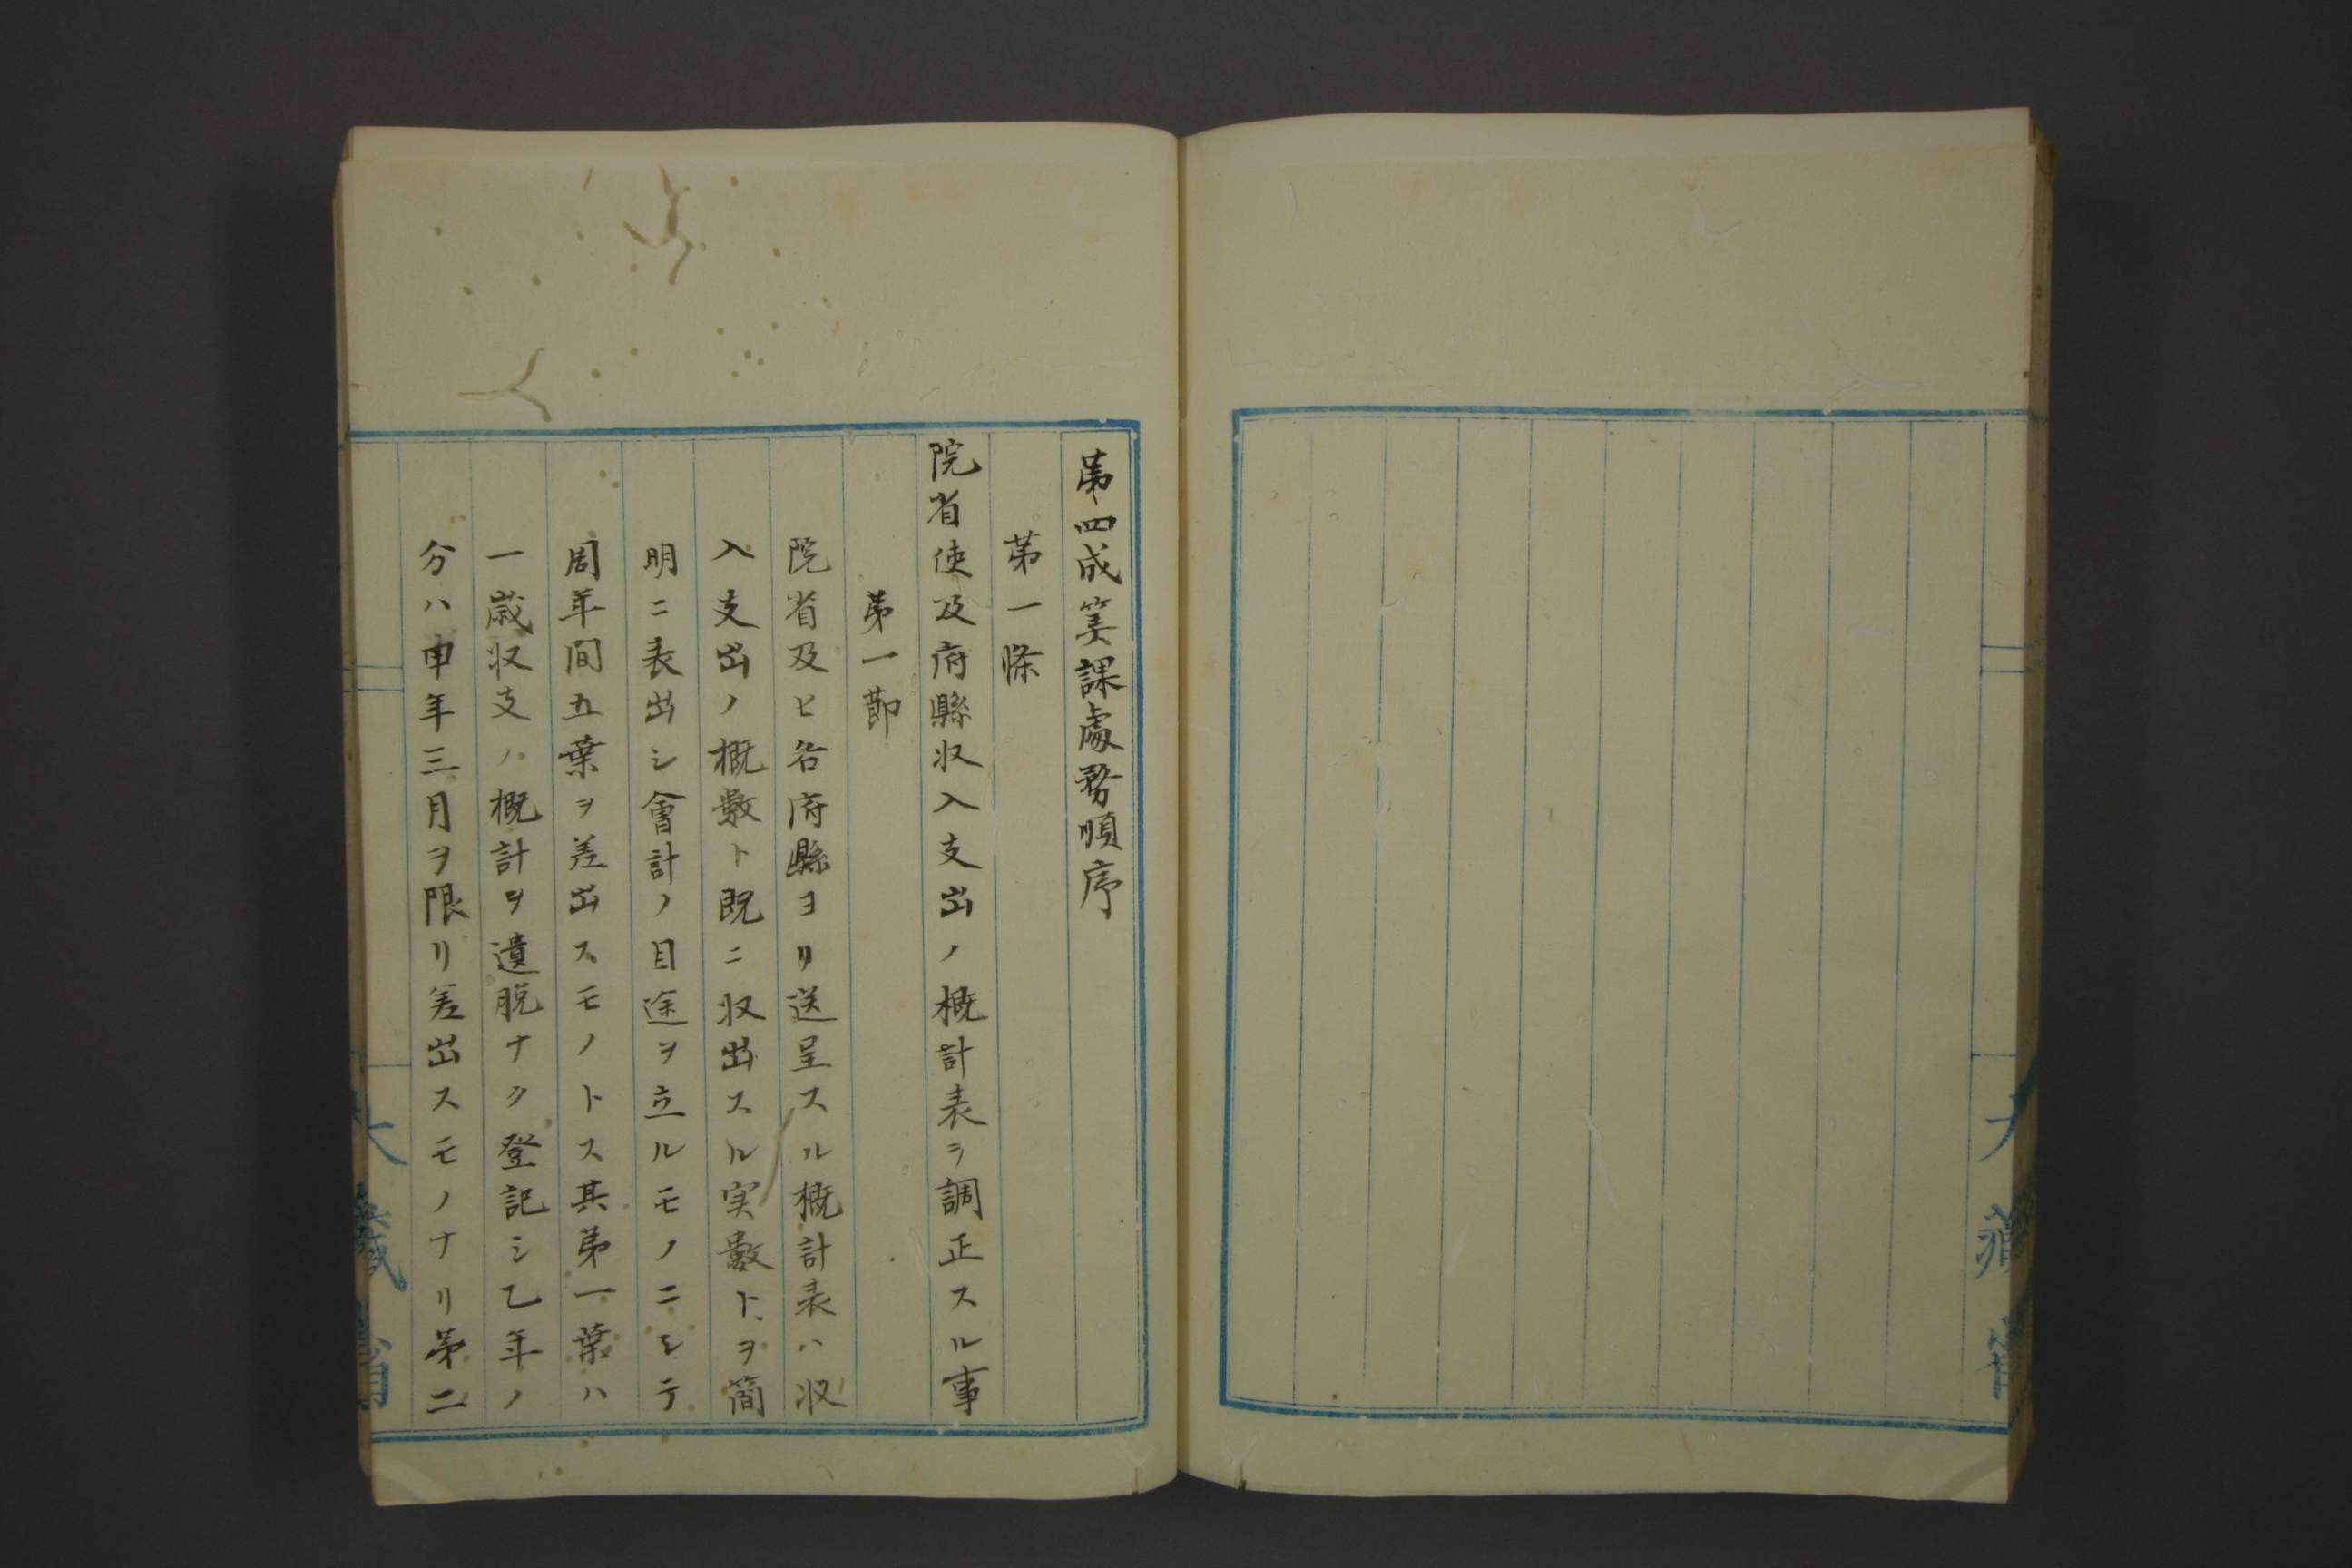 第四成筭課處務順序
第一條
院省使及府縣収入支出ノ概計表ヲ調正スル事
第一節
院省及ヒ各府縣ヨリ送呈スル概計表ハ収
入支出ノ概數ト既ニ収出スル実數トヲ簡
明ニ表出シ會計ノ目途ヲ立ルモノニシテ
周年間五葉ヲ差出スモノトス其第一葉ハ
一歳収支ノ概計ヲ遺脱ナク登記シ乙年ノ
分ハ申年三月ヲ限リ差出スモノナリ第二
大藏省
大藏省